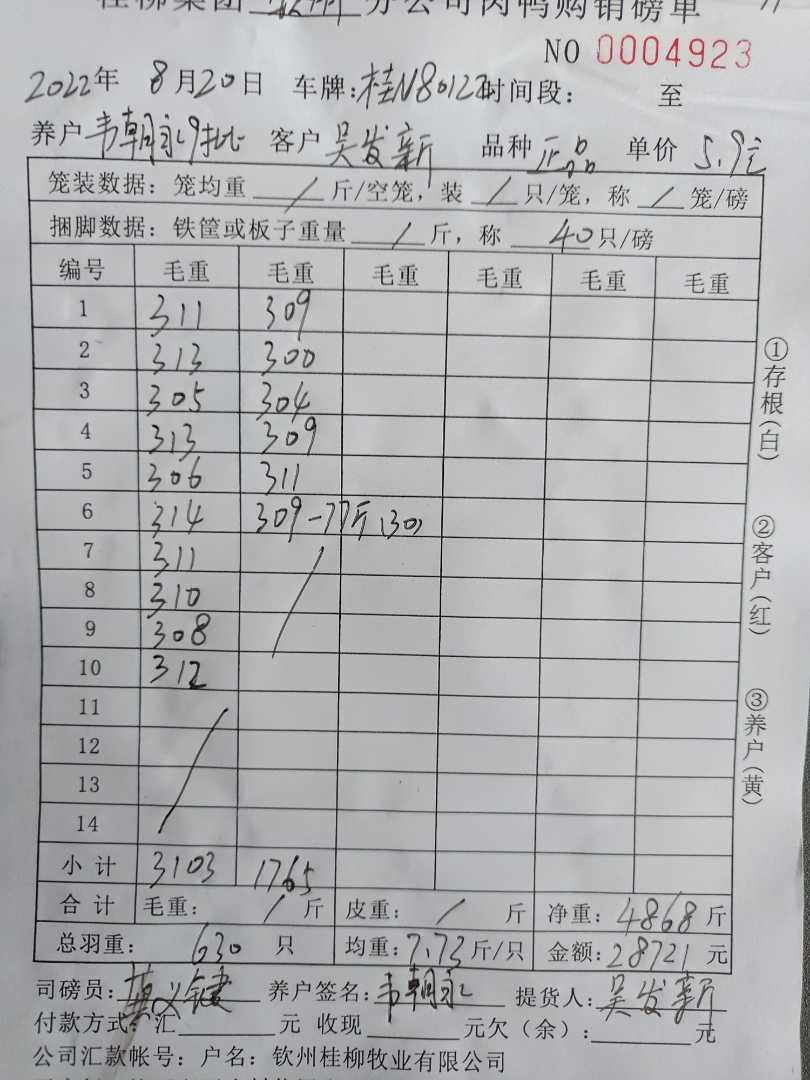 桂柳集团 钦州 分公司肉鸭购销磅单
NO 0004923
2022年 8月20日 车牌:桂N80127 时间段: 至
养户 韦朝永9批 客户 吴发新 品种 正品 单价 5.9元
笼装数据: 笼均重 / 斤/空笼, 装 / 只/笼, 称 / 笼/磅
捆脚数据: 铁筐或板子重量 / 斤, 称 40 只/磅
编号 毛重 毛重 毛重 毛重 毛重 毛重
1 311 309
2 313 300
3 305 304
4 313 309
5 306 311
6 314 309-77斤(30)
7 311
8 310
9 308
10 312
11
12
13
14
小计 3103 1765
合计 毛重: / 斤 皮重: / 斤 净重: 4868 斤
总羽重: 630 只 均重: 7.73 斤/只 金额: 28721 元
司磅员: 莫义键 养户签名: 韦朝永 提货人: 吴发新
付款方式: 汇 元 收现 元欠(余): 元
公司汇款帐号: 户名: 钦州桂柳牧业有限公司
①存根(白)
②客户(红)
③养户(黄)